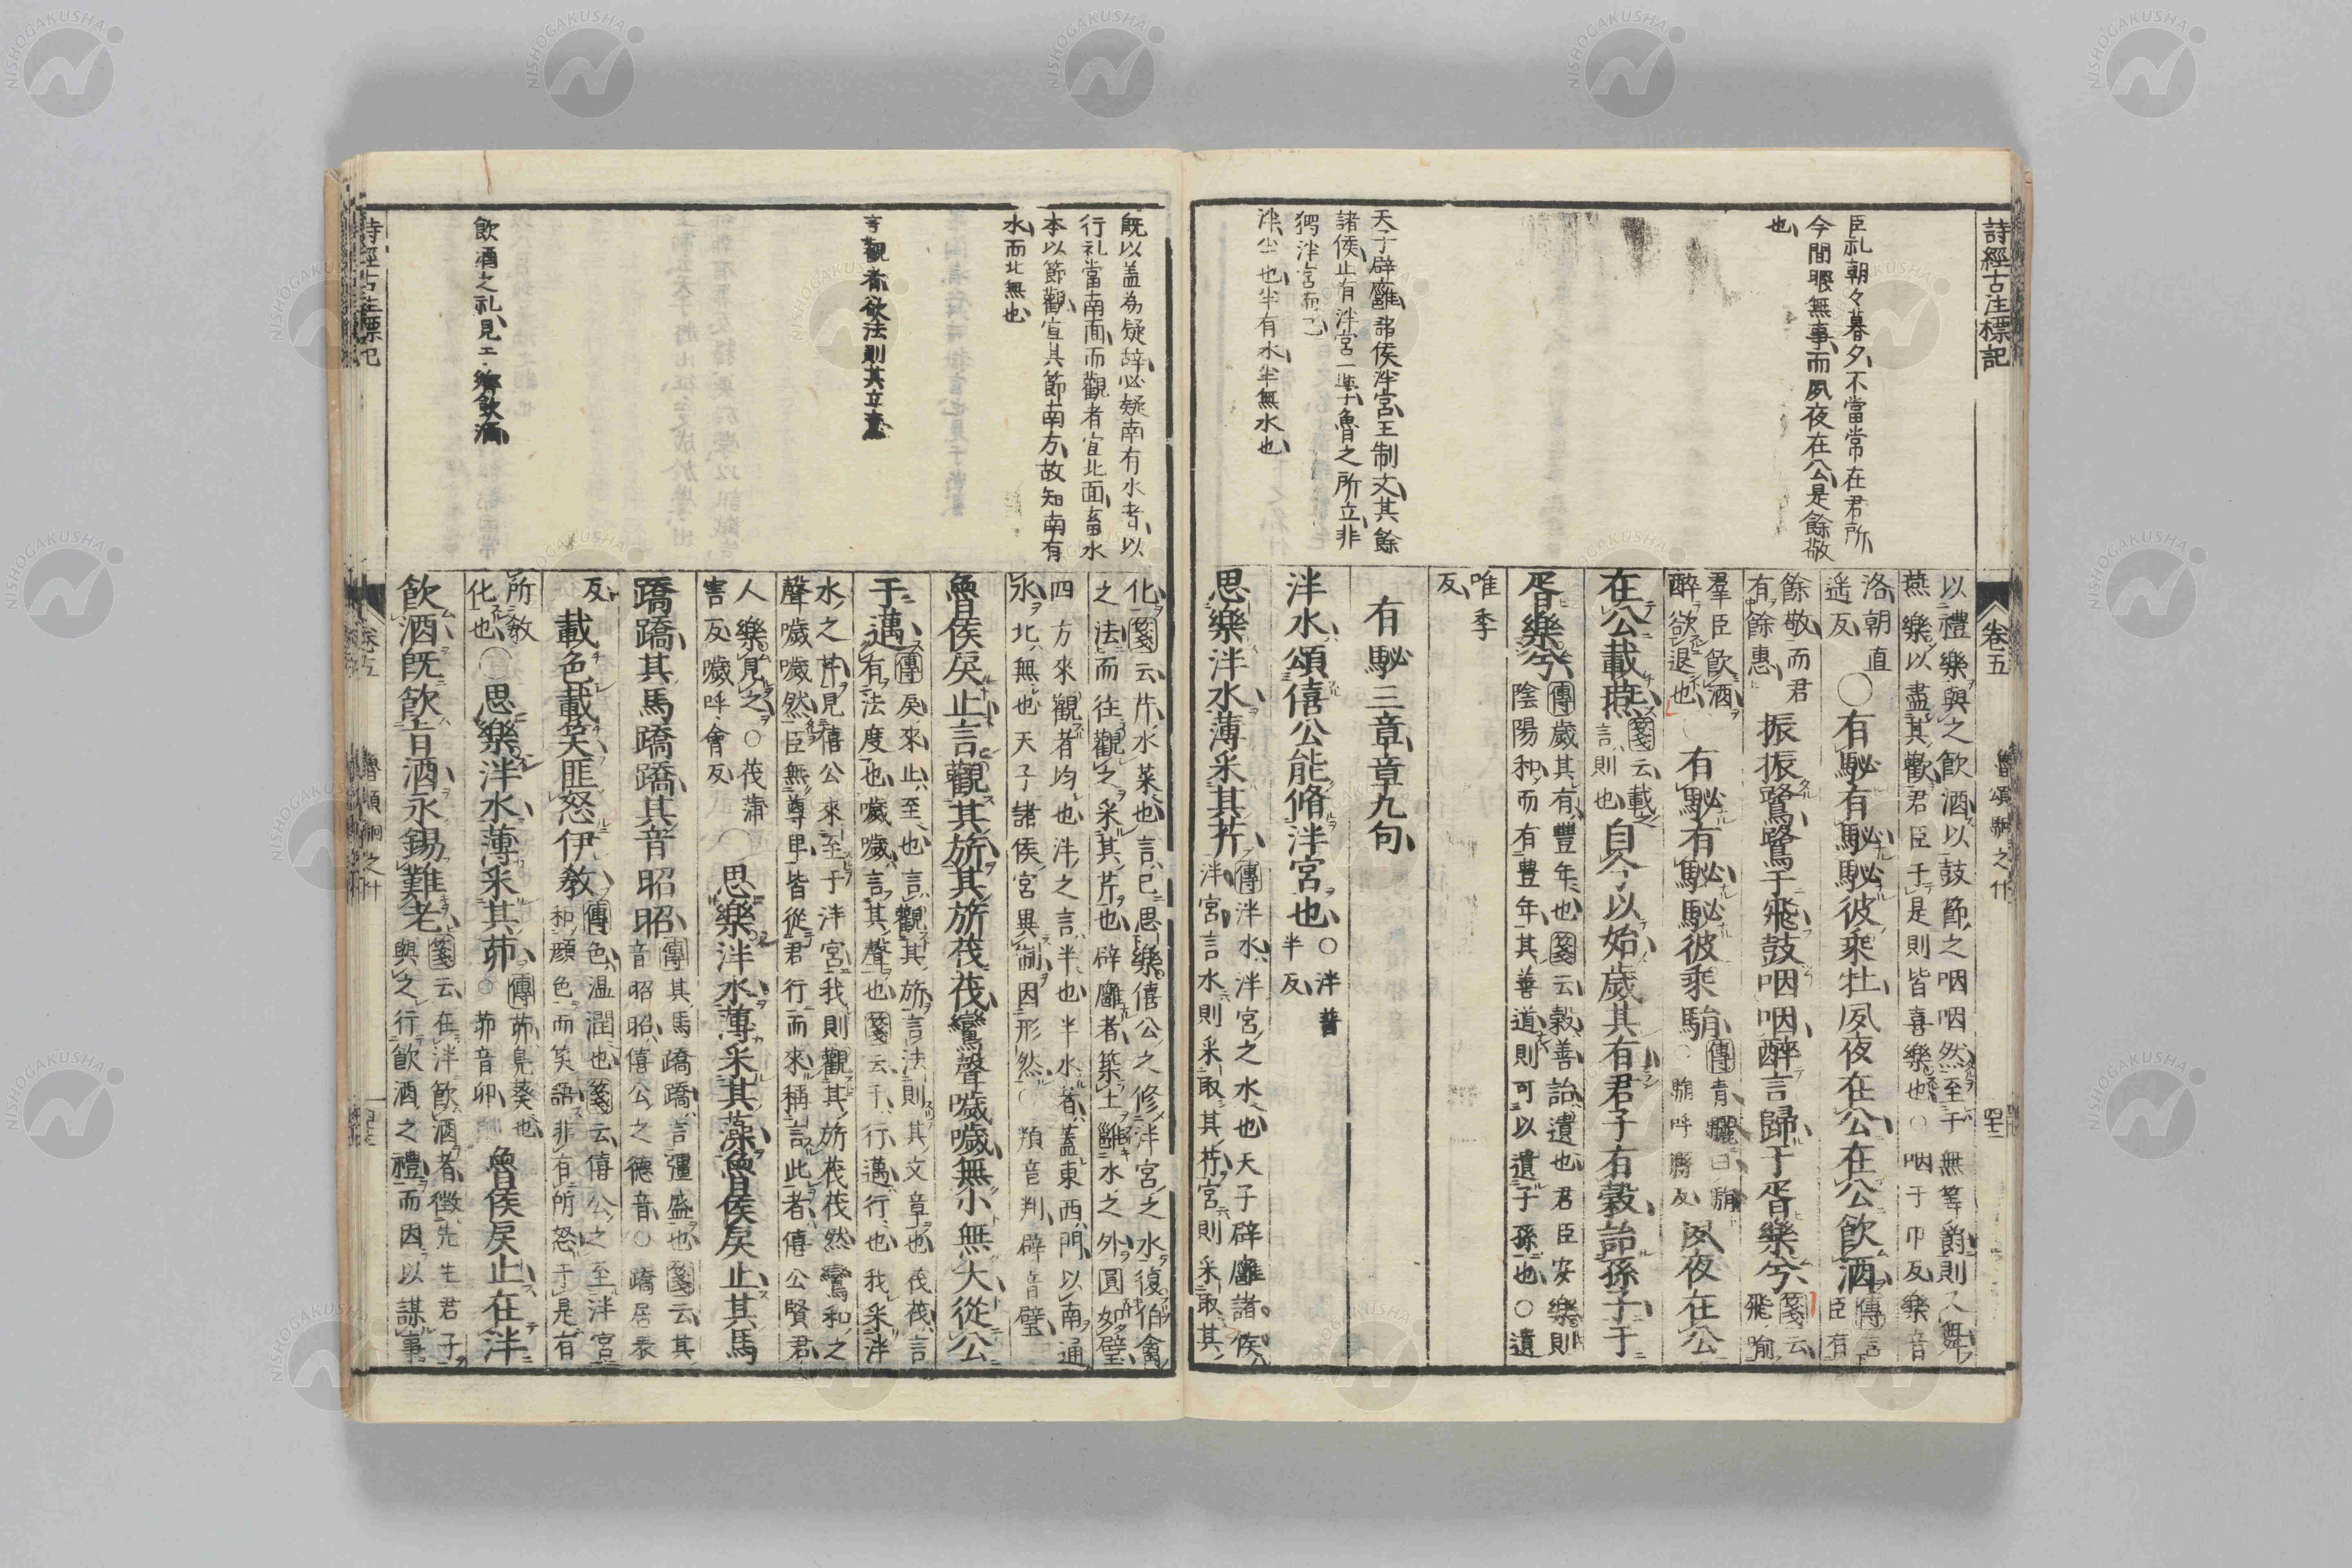 詩經古注標記
卷五
魯頌駉之什
臣礼朝々暮夕不當常在君所
今間暇無事而夙夜在公是餘敬
也
天子辟廱諸侯泮宮王制文其餘
諸侯止有泮宮一學魯之所立非
獨泮宮而已
泮半也半有水半無水也
以禮樂與之飲酒以鼓節之咽咽然至于無筭爵則又舞
燕樂以盡其歡君臣于是則皆喜樂也○咽于巾反樂音
洛朝直
遥反
○有駜有駜駜彼乘牡夙夜在公在公飲酒
傳言
臣有
餘敬而君
有餘惠
振振鷺鷺于飛鼓咽咽醉言歸于胥樂兮
箋云
飛喻
羣臣飲酒
醉欲退也
○有駜有駜駜彼乘駽
傳青驪曰駽
○駽呼縣反
夙夜在公
在公載燕
箋云載之
言則也
自今以始歲其有君子有穀詒孫子于
胥樂兮
傳歲其有豐年也箋云穀善詒遺也君臣安樂則
陰陽和而有豊年其善道則可以遺子孫也○遺
唯季
反
有駜三章章九句
泮水頌僖公能脩泮宮也
○泮普
半反
思樂泮水薄采其芹
傳泮水泮宮之水也天子辟廱諸侯
泮宮言水則采取其芹宮則采取其
既以蓋為疑辞必疑南有水者以
行礼當南面而觀者宜北面畜水
本以節觀宜其節南方故知南有
水而北無也
言觀者欲法則其文章
飲酒之礼見
化箋云芹水菜也言己思樂僖公之修泮宮之水復伯禽
之法而往觀之采其芹也辟廱者築土雝水之外圓如璧
四方來觀者均也泮之言半也半水者蓋東西門以南通
水北無也天子諸侯宮異制因形然○頖音判辟音璧
魯侯戾止言觀其旂其旂茷茷鸞聲噦噦無小無大從公
于邁
傳戾來止至也言觀其旂言法則其文章也茷茷言
有法度也噦噦言其聲也箋云于行邁行也我采泮
水之芹見僖公來至于泮宮我則觀其旂茷茷然鸞和之
聲噦噦然臣無尊卑皆從君行而來稱言此者僖公賢君
人樂見之○茷蒲
害反噦呼會反
○思樂泮水薄采其藻魯侯戾止其馬
蹻蹻其馬蹻蹻其音昭昭
傳其馬蹻蹻言彊盛也箋云其
音昭昭僖公之德音○蹻居表
反
載色載笑匪怒伊教
傳色温潤也箋云僖公之至泮宮
和顔色而笑語非有所怒于是有
所教
化也
○思樂泮水薄采其茆
傳茆鳧葵也
○茆音卯
魯侯戾止在泮
飲酒既飲旨酒永錫難老
箋云在泮飲酒者徵先生君子
與之行飲酒之禮而因以謀事
詩經古注標記
卷五
魯頌駉之什